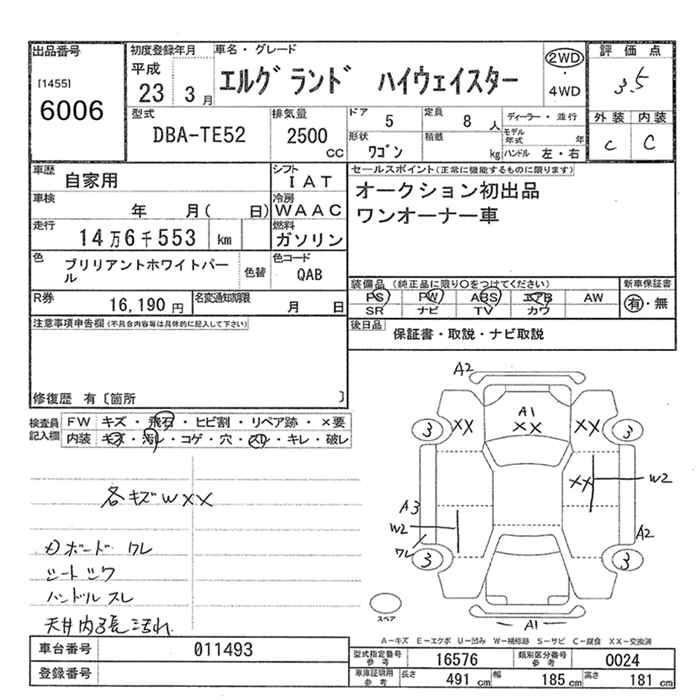 出品番号
[1455]
6006
初度登録年月
平成
23 3 月
車名・グレード
エルグランド ハイウェイスター
2WD
・
4WD
評価点
3.5
外装 内装
C C
型式
DBA-TE52
排気量
2500
CC
ドア 5
定員 8 人
形状 ワゴン
積載 kg
ディーラー・並行
モデル年式 年
ハンドル 左・右
車歴 自家用
シフト IAT
車検 年 月( 日)
冷房 WAAC
走行 14万6千553 km
燃料 ガソリン
色 ブリリアントホワイトパール
色替
色コード QAB
セールスポイント(正常に機能するものに限ります)
オークション初出品
ワンオーナー車
装備品 (純正品に限り○をつけてください)
PS PW ABS エアB AW
SR ナビ TV カワ
新車保証書
有・無
R券 16,190 円
名変通知期限 月 日
後日品 保証書・取説・ナビ取説
注意事項申告欄(不具合内容等は具体的に記入して下さい)
修復歴 有〔箇所 〕
検査員記入欄
FW キズ・飛石・ヒビ割・リペア跡・×要
内装 キズ・汚レ・コゲ・穴・スレ・キレ・破レ
各キズWXX
メボード ワレ
シートシワ
ハンドルスレ
天井内張汚れ
A2
A1
XX
XX
XX
3
3
XX
W2
A3
W2
A2
ワレ
3
3
スペア
A1
A-キズ E-エクボ U-凹み W-補修跡 S-サビ C-腐食 XX-交換済
車台番号 011493
登録番号
型式指定番号参考 16576
類別区分番号参考 0024
車庫証明用参考 長さ 491 cm 幅 185 cm 高さ 181 cm